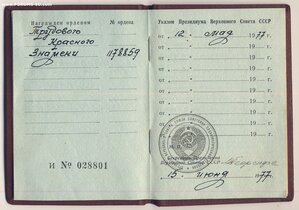 Награжден орденом № ордена
Трудового
Красного
Знамени 1178859
И № 028801
Указом Президиума Верховного Совета СССР
от 12 мая 1977
от 19 г.
от 19 г.
от 19 г.
от 19 г.
от 19 г.
от 19 г.
от 19 г.
М. П.
15 июня 1977